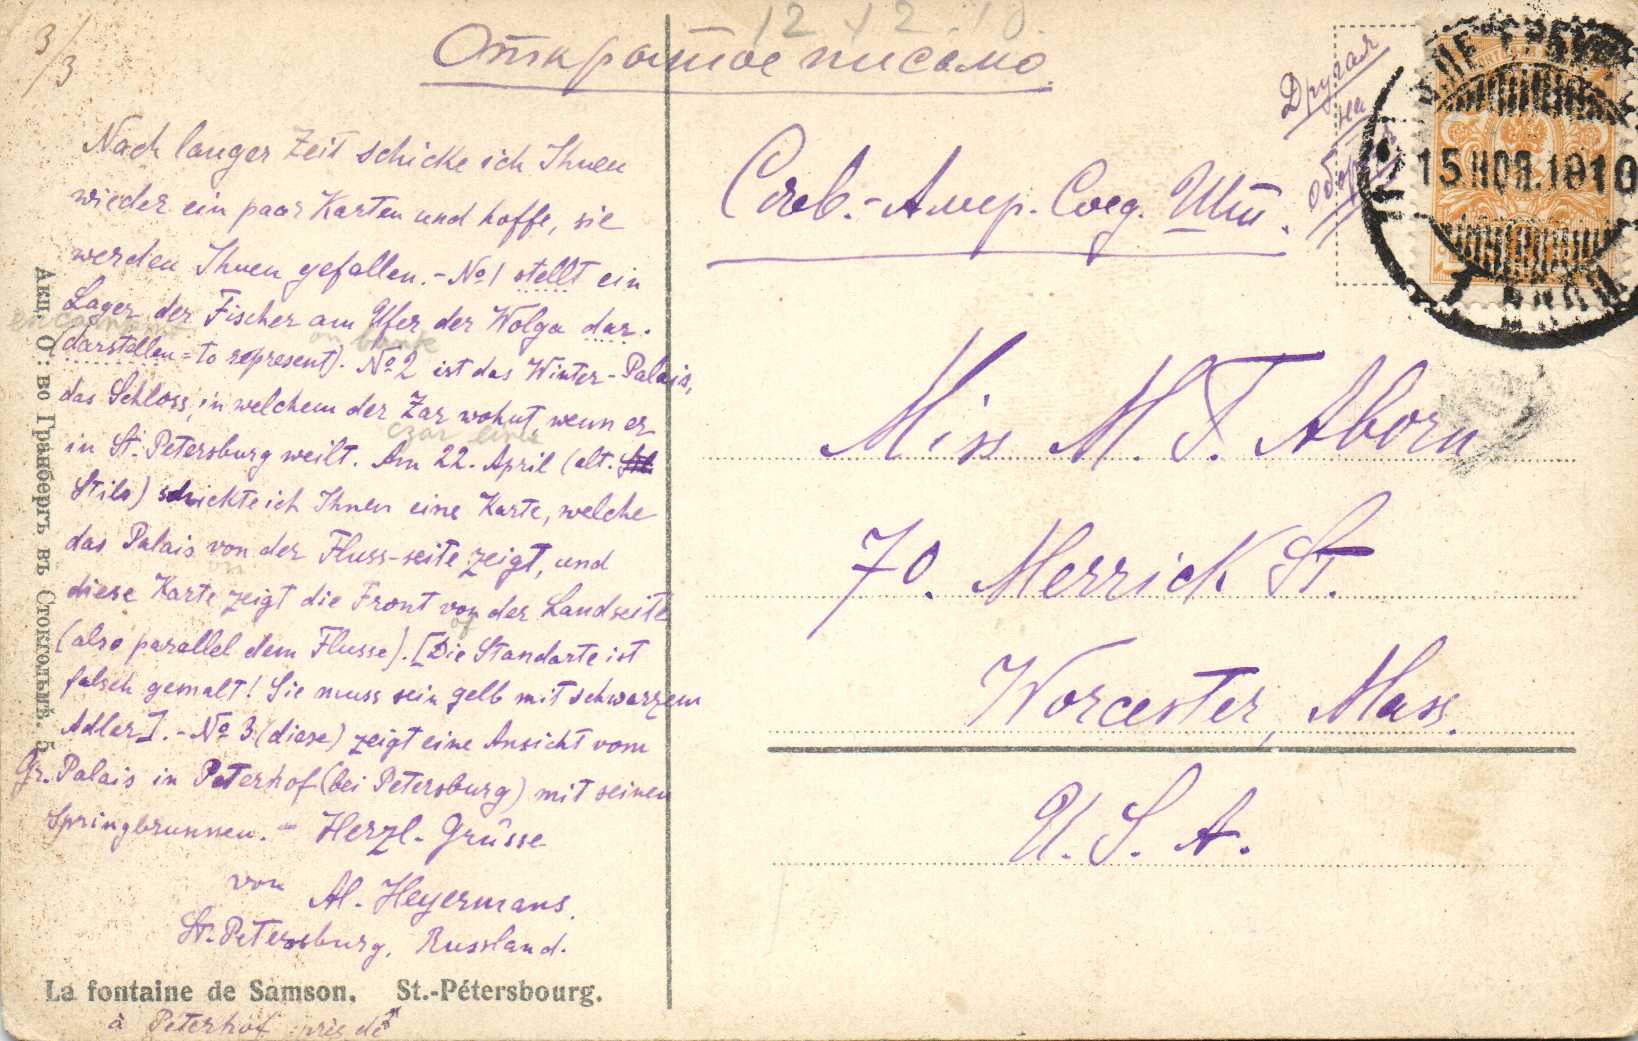 3/3
12.12.10.
Открытое письмо.
Другая
на
Nach langer Zeit schicke ich Ihnen
wieder ein paar Karten und hoffe, sie
werden Ihnen gefallen. - No 1 stellt ein
Lager der Fischer am Ufer der Wolga dar.
(darstellen = to represent). No 2 ist das Winter-Palais,
das Schloss, in welchem der Zar wohnt, wenn er
in St. Petersburg weilt. Am 22. April (alt.
Stils) schickte ich Ihnen eine Karte, welche
das Palais von der Fluss-seite zeigt, und
diese Karte zeigt die Front von der Landseite
(also parallel dem Flusse). [Die Standarte ist
falsch gemalt! Sie muss sein gelb mit schwarzem
Adler]. - No 3 (diese) zeigt eine Ansicht vom
Gr. Palais in Peterhof (bei Petersburg) mit seinen
Springbrunnen. - Herzl. Grüsse
von Al. Heyermans.
St. Petersburg, Russland.
encampment
on bank
czar
on
of
La fontaine de Samson. St.-Pétersbourg.
à Peterhof près de
Акц. О: во Гранбергъ въ Стокгольмѣ. 5
Сѣв.-Амер. Соед. Шт.
15 НОЯ.1910
Miss M. T. Aborn
70. Merrick St.
Worcester, Mass.
U. S. A.